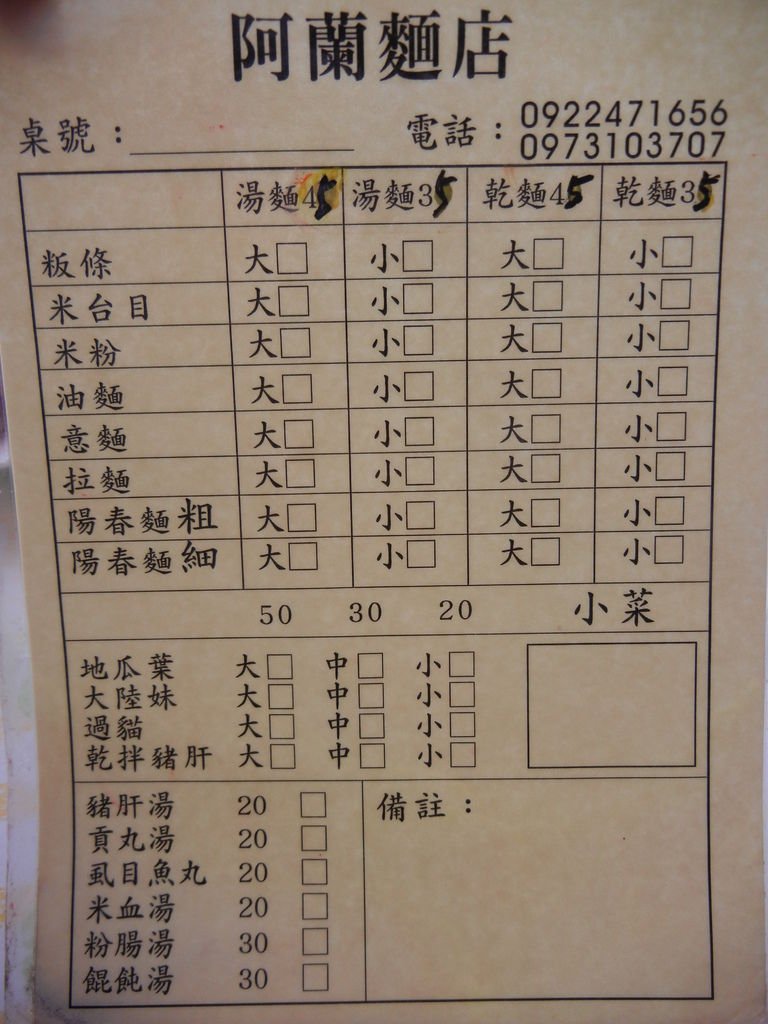 阿蘭麵店
桌號：　電話：0922471656
0973103707
湯麵45 湯麵35 乾麵45 乾麵35
粄條 大□ 小□ 大□ 小□
米台目 大□ 小□ 大□ 小□
米粉 大□ 小□ 大□ 小□
油麵 大□ 小□ 大□ 小□
意麵 大□ 小□ 大□ 小□
拉麵 大□ 小□ 大□ 小□
陽春麵粗 大□ 小□ 大□ 小□
陽春麵細 大□ 小□ 大□ 小□
50 30 20 小菜
地瓜葉 大□ 中□ 小□
大陸妹 大□ 中□ 小□
過貓 大□ 中□ 小□
乾拌豬肝 大□ 中□ 小□
豬肝湯 20 □ 備註：
貢丸湯 20 □
虱目魚丸 20 □
米血湯 20 □
粉腸湯 30 □
餛飩湯 30 □